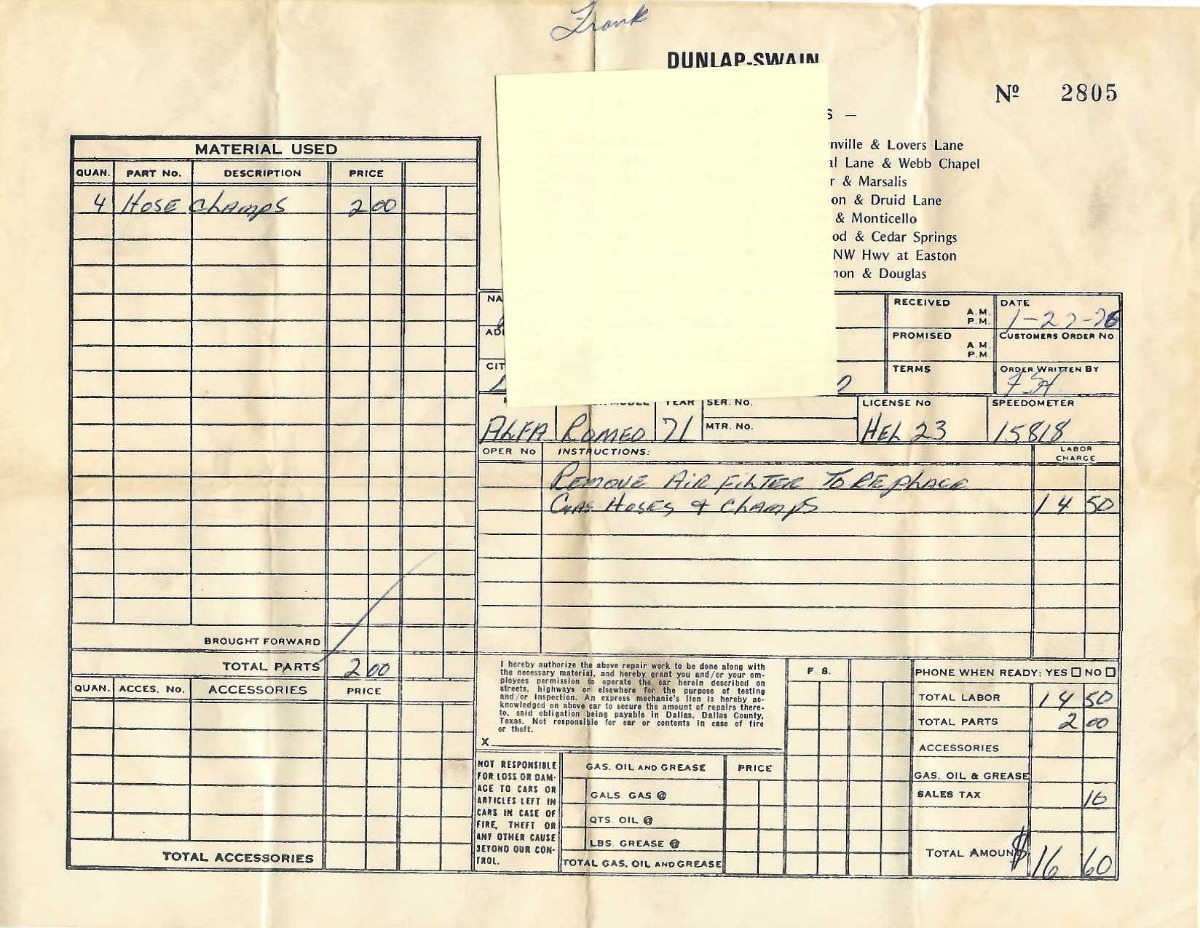 Frank
DUNLAP-SWAIN
Nº 2805
S —
nville & Lovers Lane
al Lane & Webb Chapel
r & Marsalis
on & Druid Lane
& Monticello
od & Cedar Springs
NW Hwy at Easton
non & Douglas
MATERIAL USED
QUAN. PART No. DESCRIPTION PRICE
4 HOSE CLAMPS 2 00
BROUGHT FORWARD
TOTAL PARTS 2 00
QUAN. ACCES. No. ACCESSORIES PRICE
TOTAL ACCESSORIES
NA
AD
CIT
RECEIVED A.M. P.M.
DATE
PROMISED A.M. P.M
CUSTOMERS ORDER NO
TERMS
ORDER WRITTEN BY
MODEL YEAR SER. NO. LICENSE NO SPEEDOMETER
MTR. NO.
ALFA ROMEO 71 HEL 23 15818
OPER NO INSTRUCTIONS: LABOR CHARGE
REMOVE AIR FILTER TO REPLACE
GAS HOSES & CLAMPS 14 50
I hereby authorize the above repair work to be done along with
the necessary material, and hereby grant you and/or your em-
ployees permission to operate the car herein described on
streets, highways or elsewhere for the purpose of testing
and/or inspection. An express mechanic's lien is hereby ac-
knowledged on above car to secure the amount of repairs there-
to, said obligation being payable in Dallas, Dallas County,
Texas. Not responsible for car or contents in case of fire
or theft.
X
NOT RESPONSIBLE
FOR LOSS OR DAM-
AGE TO CARS OR
ARTICLES LEFT IN
CARS IN CASE OF
FIRE, THEFT OR
ANY OTHER CAUSE
BEYOND OUR CON-
TROL.
GAS. OIL AND GREASE PRICE
GALS. GAS @
QTS. OIL @
LBS. GREASE @
TOTAL GAS, OIL AND GREASE
PHONE WHEN READY: YES NO
TOTAL LABOR 14 50
TOTAL PARTS 2 00
ACCESSORIES
GAS. OIL & GREASE
SALES TAX
TOTAL AMOUNT $ 16 60